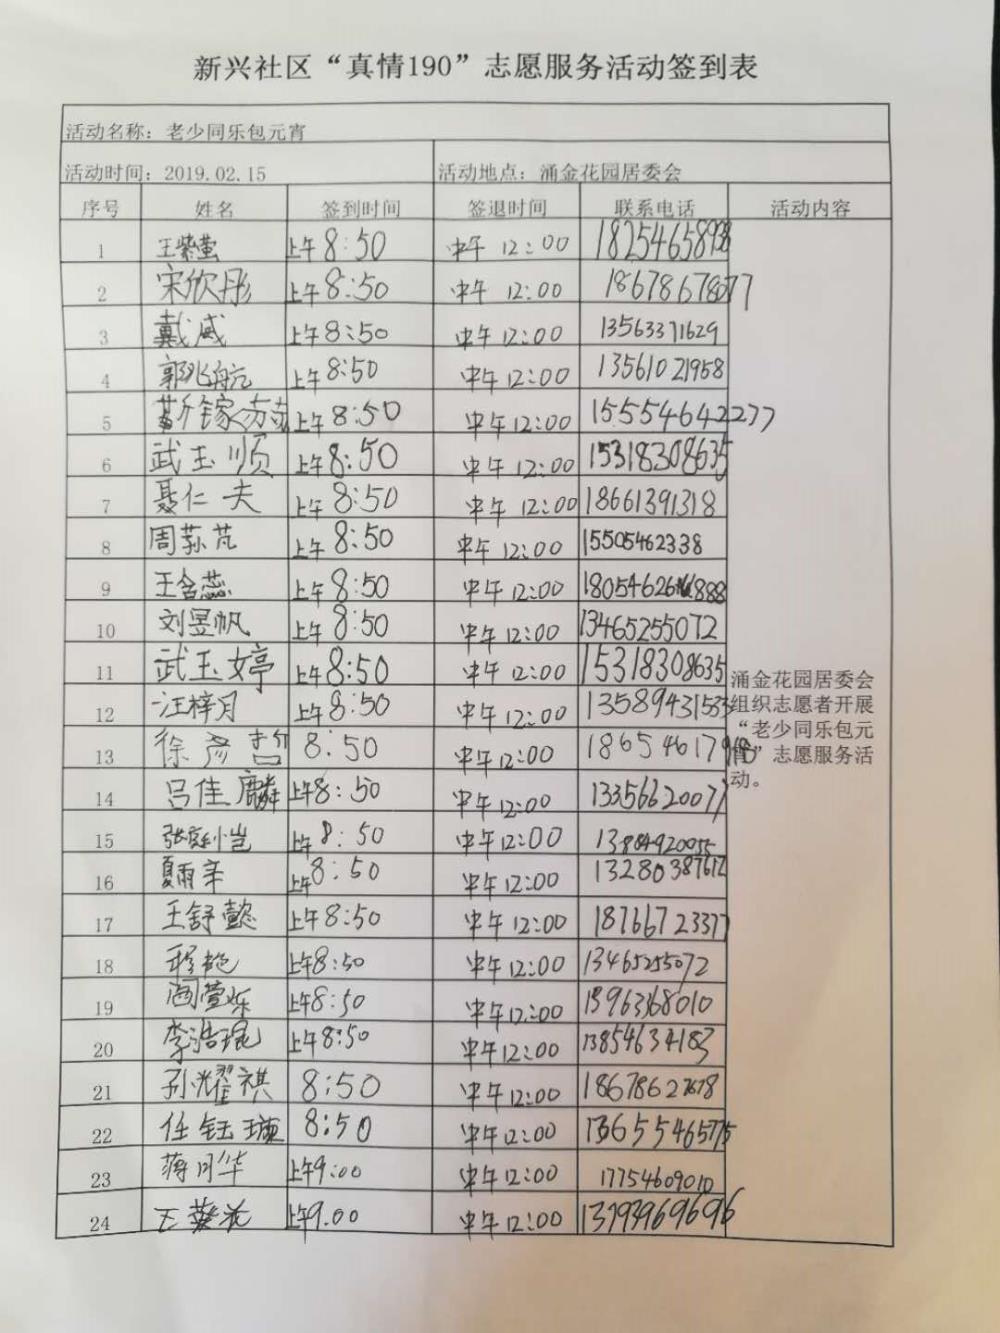 新兴社区“真情190”志愿服务活动签到表
活动名称：老少同乐包元宵
活动时间：2019.02.15 活动地点：涌金花园居委会
序号 姓名 签到时间 签退时间 联系电话 活动内容
1 王紫萤 上午8:50 中午 12:00
2 宋欣彤 上午8:50 中午 12:00 18678678077
3 戴威 上午8:50 中午12:00 13563371629
4 郭兆航 上午8:50 中午12:00 13561021958
5 上午8:50 中午12:00 15554642277
6 武玉顺 上午8:50 中午12:00 15318308635
7 聂仁夫 上午8:50 中午 12:00 18661391318
8 周荪芃 上午8:50 中午12:00 15505462338
9 王含蕊 上午8:50 中午12:00
10 刘昱帆 上午8:50 中午12:00 13465255072
11 武玉婷 上午8:50 中午12:00 15318308635
12 汪梓月 上午8:50 中午12:00 13589431535
13 徐彦哲 8:50 中午12:00
14 吕佳麟 上午8:50 中午12:00 13356620077
15 上午8:50 中午12:00
16 夏雨辛 上午8:50 中午12:00 13280387612
17 王舒懿 上午8:50 中午12:00 18766723377
18 程艳 上午8:50 中午12:00 13465255072
19 阎萱烁 上午8:50 中午12:00 13963368010
20 李浩琨 上午8:50 中午12:00 13854634183
21 孙耀祺 8:50 中午12:00 18678627678
22 任钰璇 8:50 中午12:00 13655465775
23 蒋月华 上午9:00 中午12:00 17754609010
24 上午9.00 中午12:00 13793969696
涌金花园居委会
组织志愿者开展
“老少同乐包元
宵”志愿服务活
动。